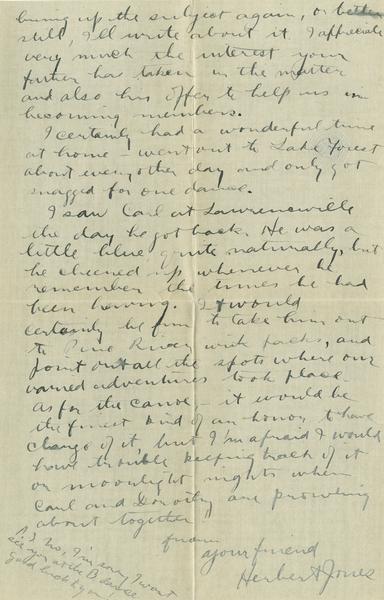 bring up the subject again, or better
still, I'll write about it. I appreciate
very much the interest your
father has taken in the matter
and also his offer to help us in
becoming members.
I certainly had a wonderful time
at home - went out to Lake Forest
about every other day and only got
snagged for one dance.
I saw Carl at Lawrenceville
the day he got back. He was a
little blue, quite naturally, but
he cheered up whenever he
remember the times he had
been having. It would
certainly be fun to take him out
to Pine River with packs, and
point out all the spots where our
varied adventures took place.
As for the canoe - it would be
the finest kind of an honor to have
charge of it, but I'm afraid I would
have trouble keeping track of it
on moonlight nights when
Carl and Dorothy are prowling
about together
from
your friend
Herbert Jones
P.S. No, I'm sorry I won't
see you at the B. dance
good luck to you!